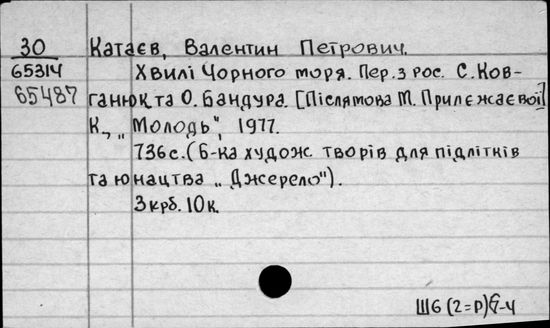 30 Катаєв, Валентин Петрович.
65314 Хвилі Чорного моря. Пер. з рос. С. Ков-
65487 ганюк та О. Бандура. [Післямова М. Прилєжаєвої]
К., „Молодь", 1977.
736с. (Б-ка худож. творів для підлітків
та юнацтва „Джерело").
3 крб. 10 к.
Ш6 (2=Р)